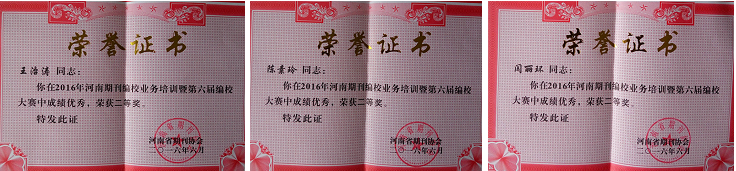 荣誉证书
王治涛 同志：
你在2016年河南期刊编校业务培训暨第六届编校
大赛中成绩优秀，荣获二等奖。
特发此证
河南省期刊协会
二〇一六年六月
荣誉证书
陈素玲 同志：
你在2016年河南期刊编校业务培训暨第六届编校
大赛中成绩优秀，荣获二等奖。
特发此证
河南省期刊协会
二〇一六年六月
荣誉证书
闫丽环 同志：
你在2016年河南期刊编校业务培训暨第六届编校
大赛中成绩优秀，荣获二等奖。
特发此证
河南省期刊协会
二〇一六年六月